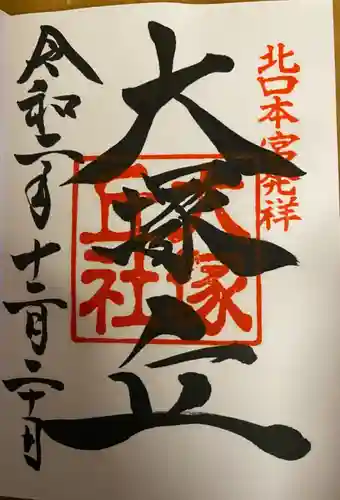 北口本宮発祥
大塚丘
大塚
丘社
令和六年十二月二十日